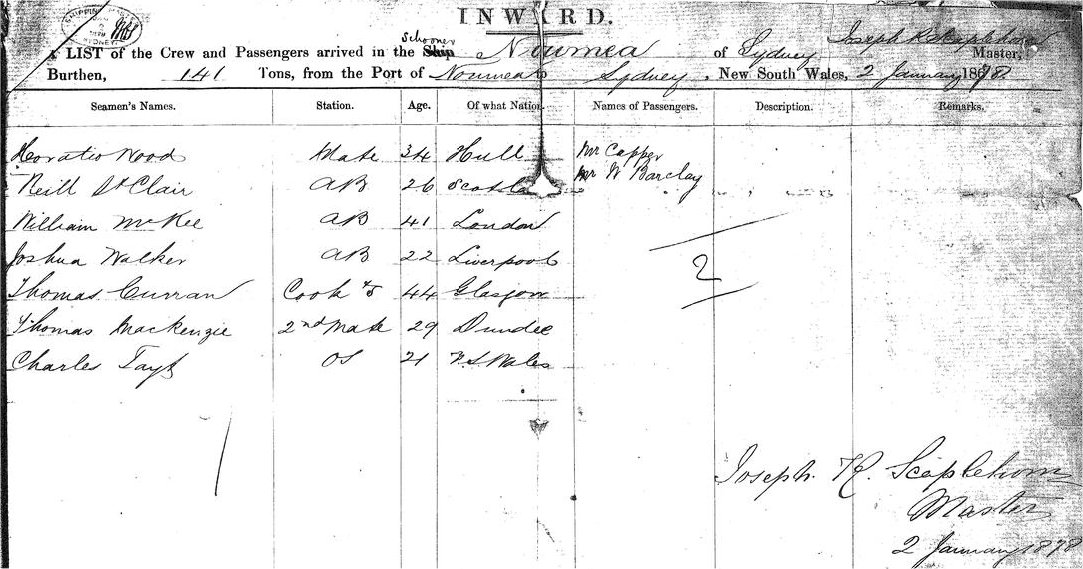 SHIPPING
SYDNEY
INWARD.
Schooner
A LIST of the Crew and Passengers arrived in the Ship Noumea of Sydney Joseph R. Scaplehorn Master,
Burthen, 141 Tons, from the Port of Noumea to Sydney, New South Wales, 2 January 1878
Seamen's Names. Station. Age. Of what Nation. Names of Passengers. Description. Remarks.
Horatio Wood Mate 34 Hull Mr Capper
Neill St Clair AB 26 Scotla Mr W Barclay
William McKee AB 41 London
Joshua Walker AB 22 Liverpool
2
Thomas Curran Cook &S 44 Glasgow
Thomas Mackenzie 2nd Mate 29 Dundee
Charles Tayt OS 21 N.S.Wales
Joseph R. Scaplehorn
Master
2 January 1878